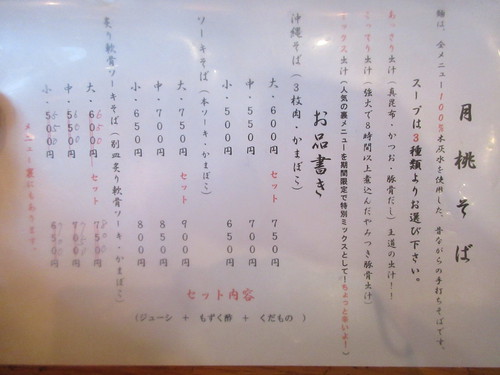 月桃そば
麺は、全メニュー100%木灰水を使用した、昔ながらの手打ちそばです。
スープは3種類よりお選び下さい。
あっさり出汁(真昆布・かつお・豚骨だし)王道の出汁!!
こってり出汁(強火で8時間以上煮込んだやみつき豚骨出汁)
ミックス出汁(人気の裏メニューを期間限定で特別ミックスとして!ちょっと辛いよ!)
お品書き
沖縄そば(3枚肉・かまぼこ)
大・600円 セット 750円
中・550円 700円
小・500円 650円
ソーキそば(本ソーキ・かまぼこ)
大・750円 セット 900円
中・700円 850円
小・650円 800円
炙り軟骨ソーキそば(別皿炙り軟骨ソーキ・かまぼこ)
大・600円 650 セット 750円 800
中・550円 600 700円 750
小・500円 550 650円 700
メニュー裏にもあります。
セット内容
(ジューシ + もずく酢 + くだもの)